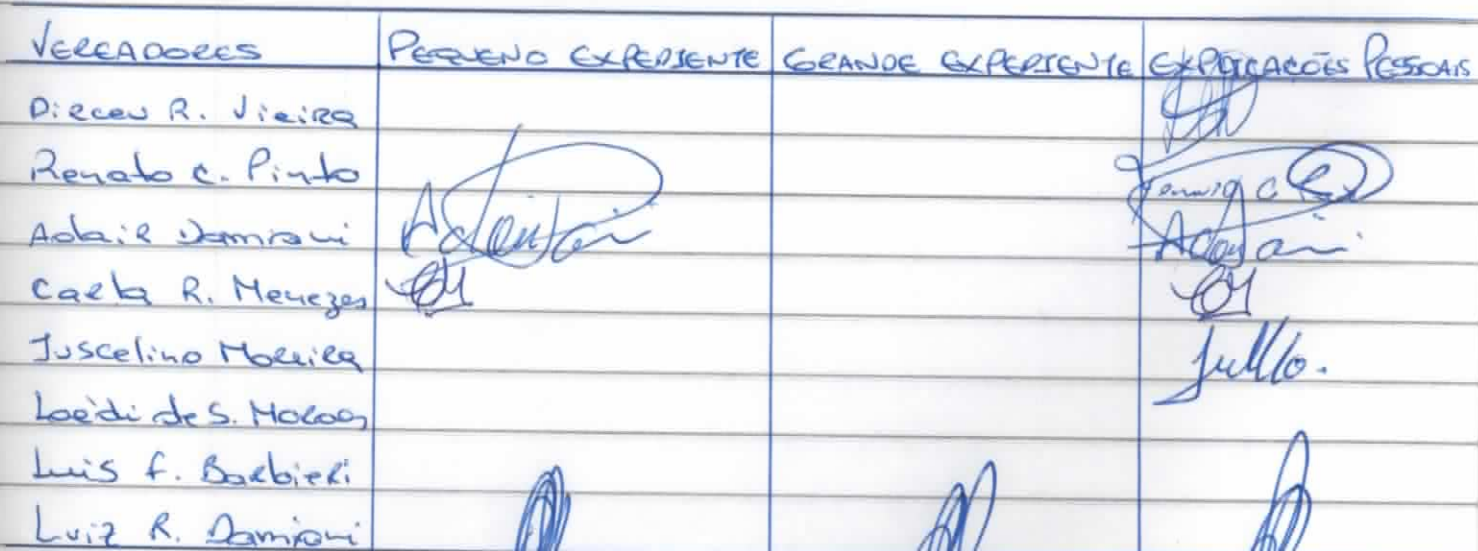 VEREADORES PEQUENO EXPEDIENTE GRANDE EXPEDIENTE EXPLICAÇÕES PESSOAIS
Dirceu R. Vieira
Renato C. Pinto
Adair Damiani
Carla R. Menezes
Juscelino Moreira
Loèdi de S.
Luis F. Barbieri
Luiz R. Damiani